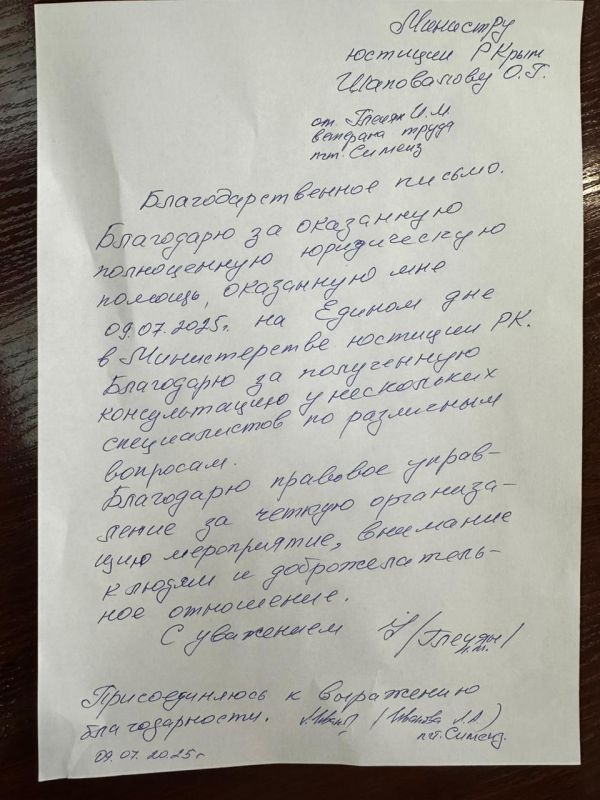 Министру
юстиции РКрым
Шаповалову О.Г.
от И.М.
ветерана труда
пгт. Симеиз
Благодарственное письмо.
Благодарю за оказанную
полноценную юридическую
помощь, оказанную мне
09.07.2025г. на Едином дне
в Министерстве юстиции РК.
Благодарю за полученную
консультацию у нескольких
специалистов по различным
вопросам.
Благодарю правовое управ-
ление за четкую организа-
цию мероприятие, внимание
к людям и доброжелатель-
ное отношение.
С уважением
Присоединяюсь к выражению
благодарности. (Иванова Л.А)
пгт. Симеиз.
09.07.2025г